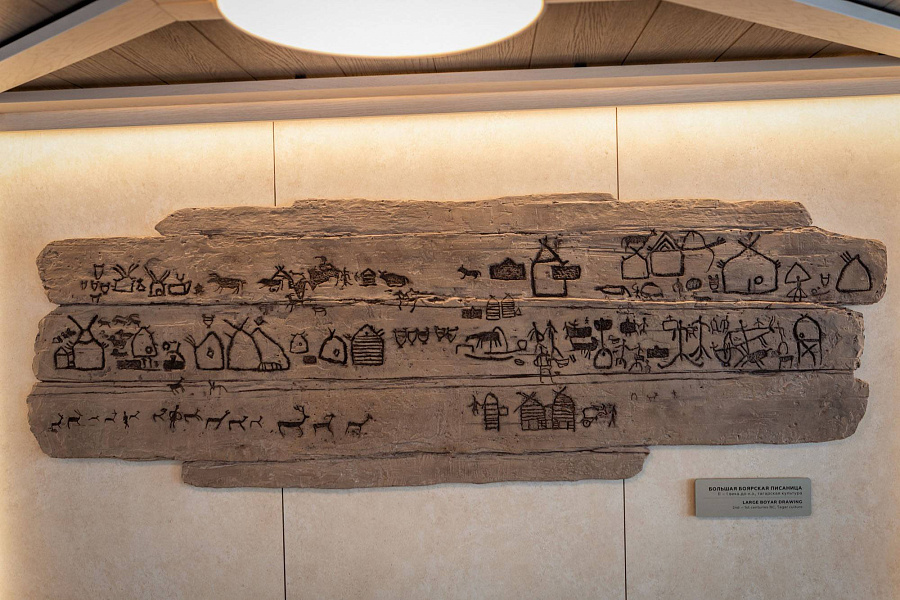 БОЛЬШАЯ БОЯРСКАЯ ПИСАНИЦА
II – I века до н.э., тагарская культура
LARGE BOYAR DRAWING
2nd – 1st centuries BC, Tagar culture